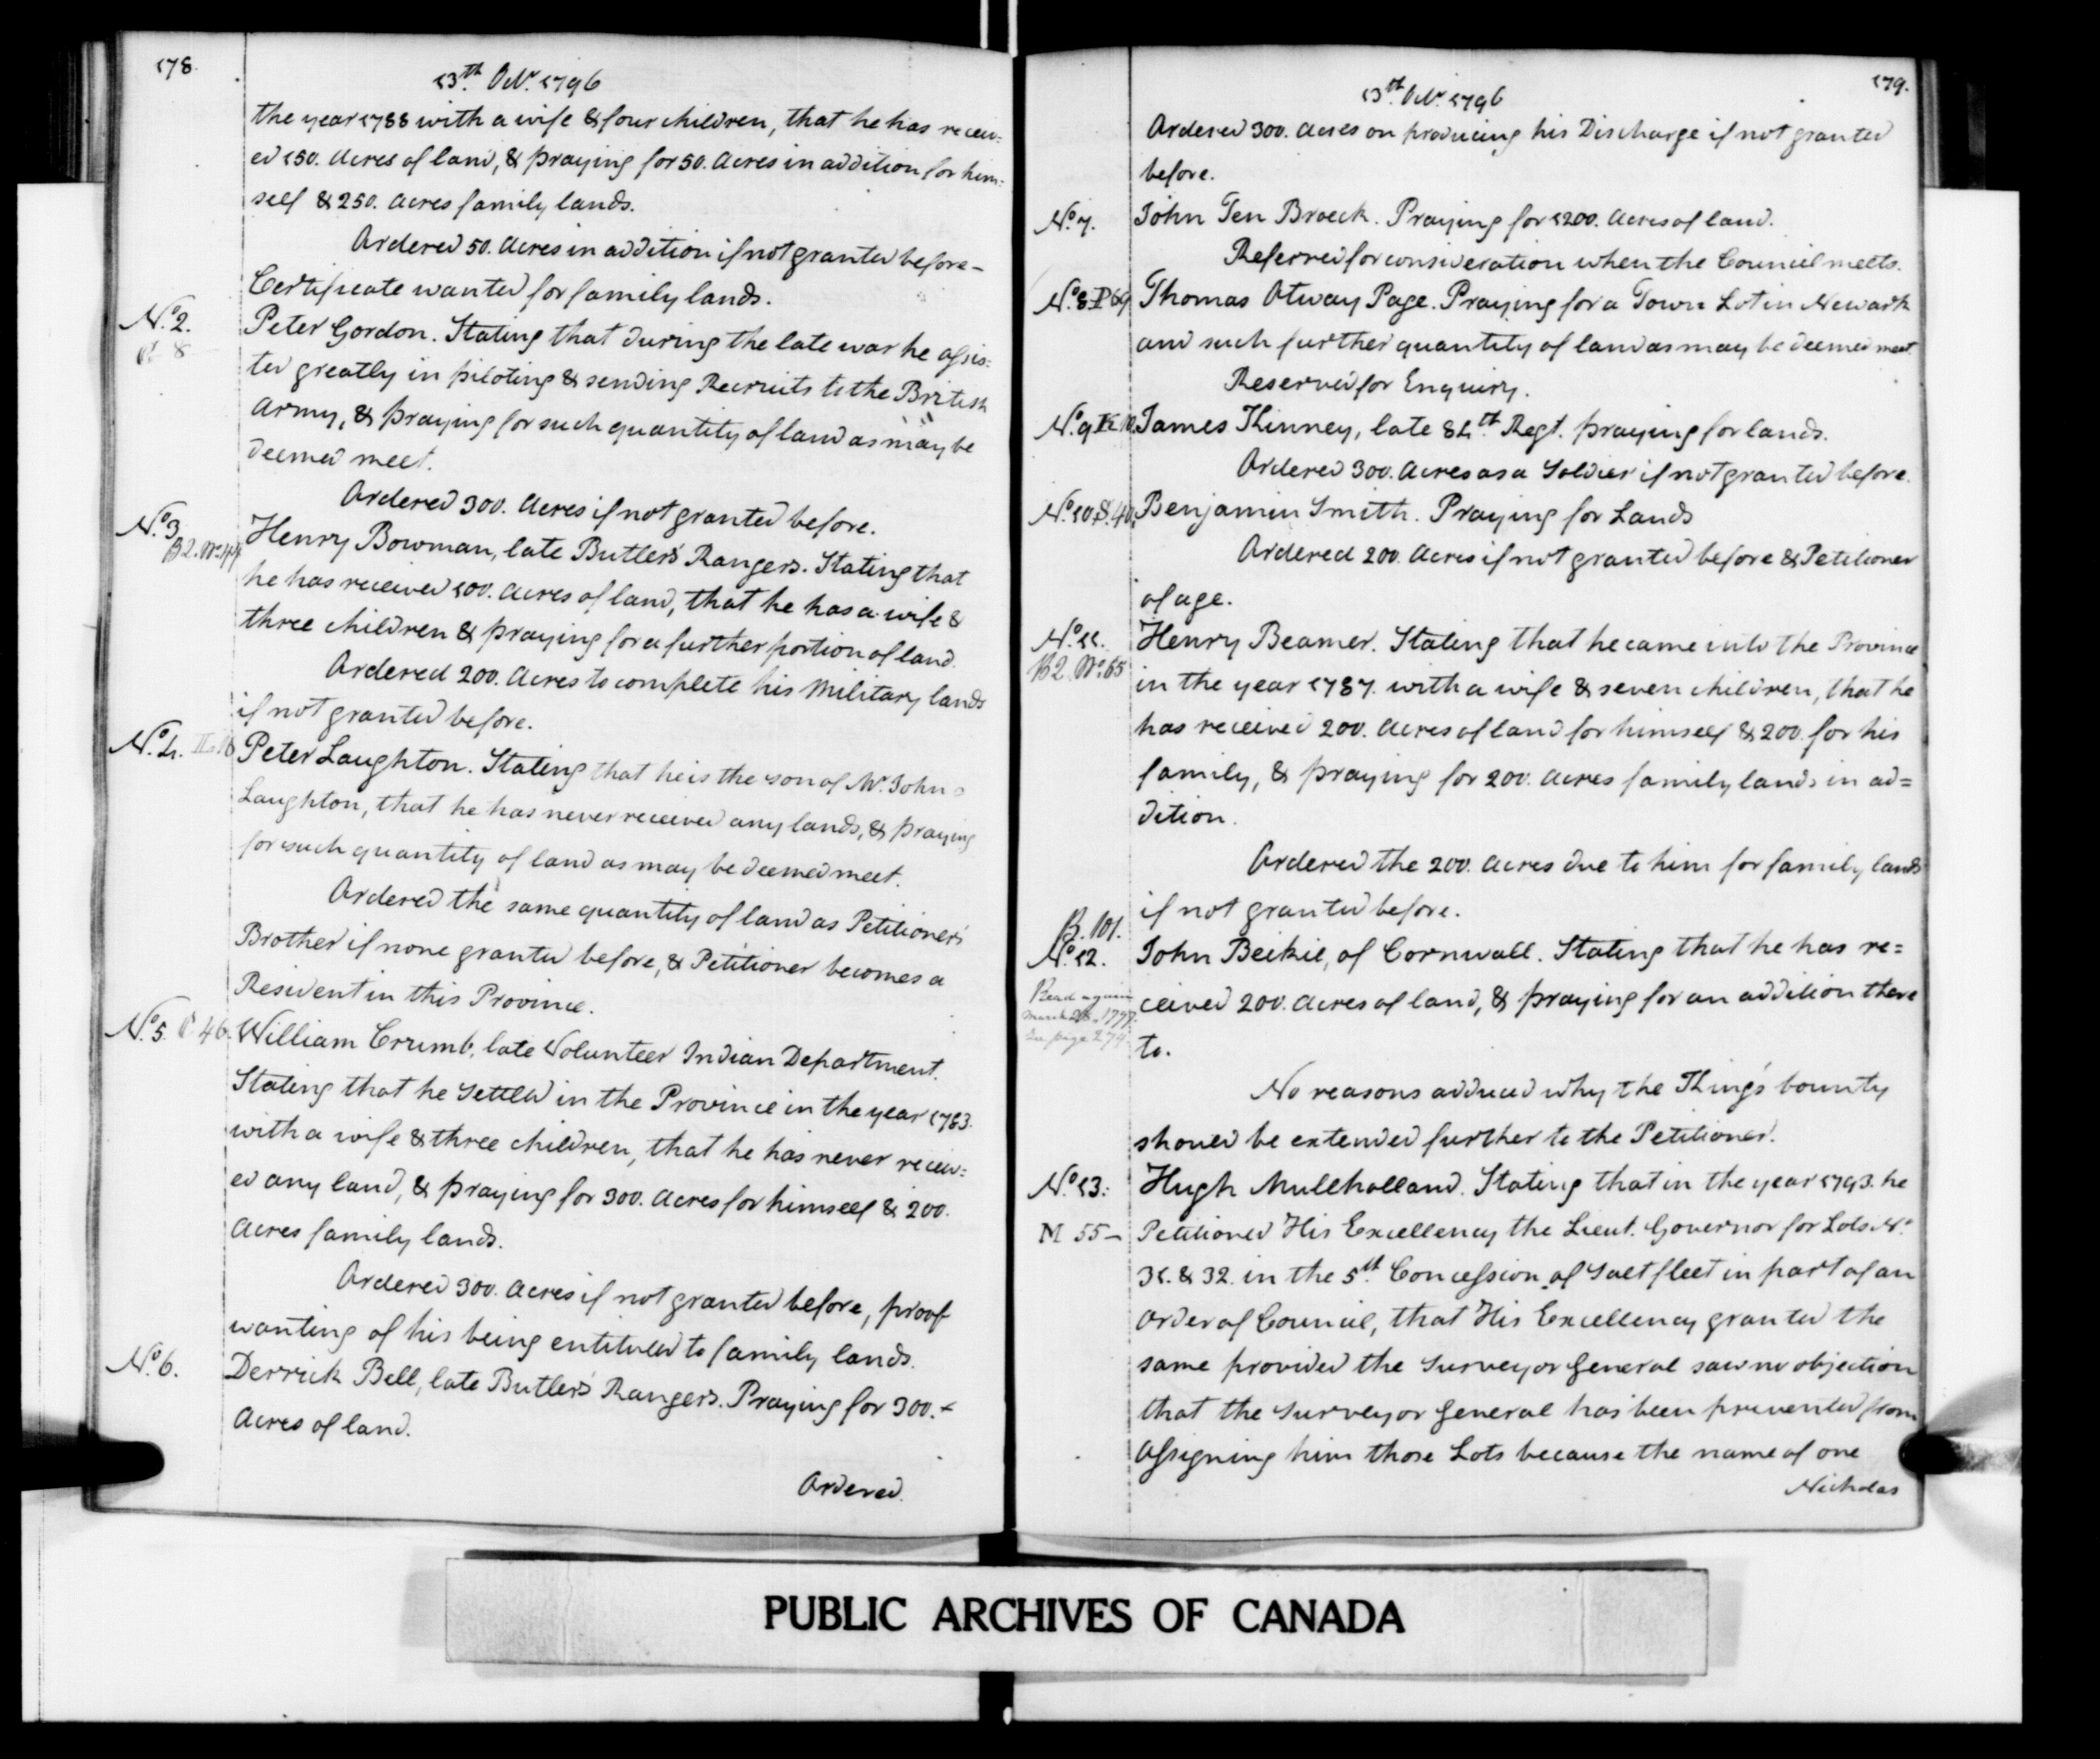 178.
13th Octr. 1796
the year 1788 with a wife & four children, that he has receiv=
ed 150. Acres of land, & praying for 50. Acres in addition for him=
self & 250. Acres family lands.
Ordered 50. Acres in addition if not granted before -
Certificate wanted for family lands.
No. 2. Peter Gordon. Stating that during the late war he assis=
ted greatly in piloting & sending Recruits to the British
Army, & praying for such quantity of land as may be
deemed meet.
Ordered 300. Acres if not granted before.
No. 3 Henry Bowman, late Butler's Rangers. Stating that
B2. No. 44
he has received 100. Acres of land, that he has a wife &
three children & praying for a further portion of land.
Ordered 200. Acres to complete his Military lands
if not granted before.
No. 4. Peter Laughton. Stating that he is the son of Mr. John
Laughton, that he has never received any lands, & praying
for such quantity of land as may be deemed meet.
Ordered the same quantity of land as Petitioner's
Brother if none granted before, & Petitioner becomes a
Resident in this Province.
No. 5. 46. William Crumb, late Volunteer Indian Department.
Stating that he Settled in the Province in the year 1783.
with a wife & three children, that he has never receiv=
ed any land, & praying for 300. Acres for himself & 200.
Acres family lands.
Ordered 300. Acres if not granted before, proof
wanting of his being entituled to family lands.
No. 6. Derrick Bell, late Butler's Rangers. Praying for 300.
Acres of land.
Ordered.
179.
13th. Octr. 1796
Ordered 300. Acres on producing his Discharge if not granted
before.
No. 7. John Ten Broeck. Praying for 1200. Acres of land.
Referred for consideration when the Council meets.
No. 8 P 69 Thomas Otway Page. Praying for a Town Lot in Newark
and such further quantity of land as may be deemed meet.
Reserved for Enquiry.
No. 9 K 10. James Kinney, late 84th Regt. praying for lands.
Ordered 300. Acres as a Soldier if not granted before.
No. 10. S. 40. Benjamin Smith. Praying for Lands
Ordered 200. Acres if not granted before & Petitioner
of age.
No. 11. Henry Beamer. Stating that he came into the Province
B2. No. 65
in the year 1787. with a wife & seven children, that he
has received 200. Acres of land for himself & 200. for his
family, & praying for 200. Acres family lands in ad=
dition.
Ordered the 200. Acres due to him for family lands
if not granted before.
B. 101.
No. 12. John Beikie, of Cornwall. Stating that he has re=
Read again
ceived 200. Acres of land, & praying for an addition there
March 1797.
See page 279
to.
No reasons adduced why the King's bounty
should be extended further to the Petitioner.
No. 13: Hugh Mullholland. Stating that in the year 1793. he
M 55 - Petitioned His Excellency the Lieut. Governor for Lots No.
31. & 32. in the 5th Concession of Saltfleet in part of an
Order of Council, that His Excellency granted the
same provided the Surveyor General saw no objection
that the Surveyor General has been prevented from
Assigning him those Lots because the name of one
Nicholas
PUBLIC ARCHIVES OF CANADA